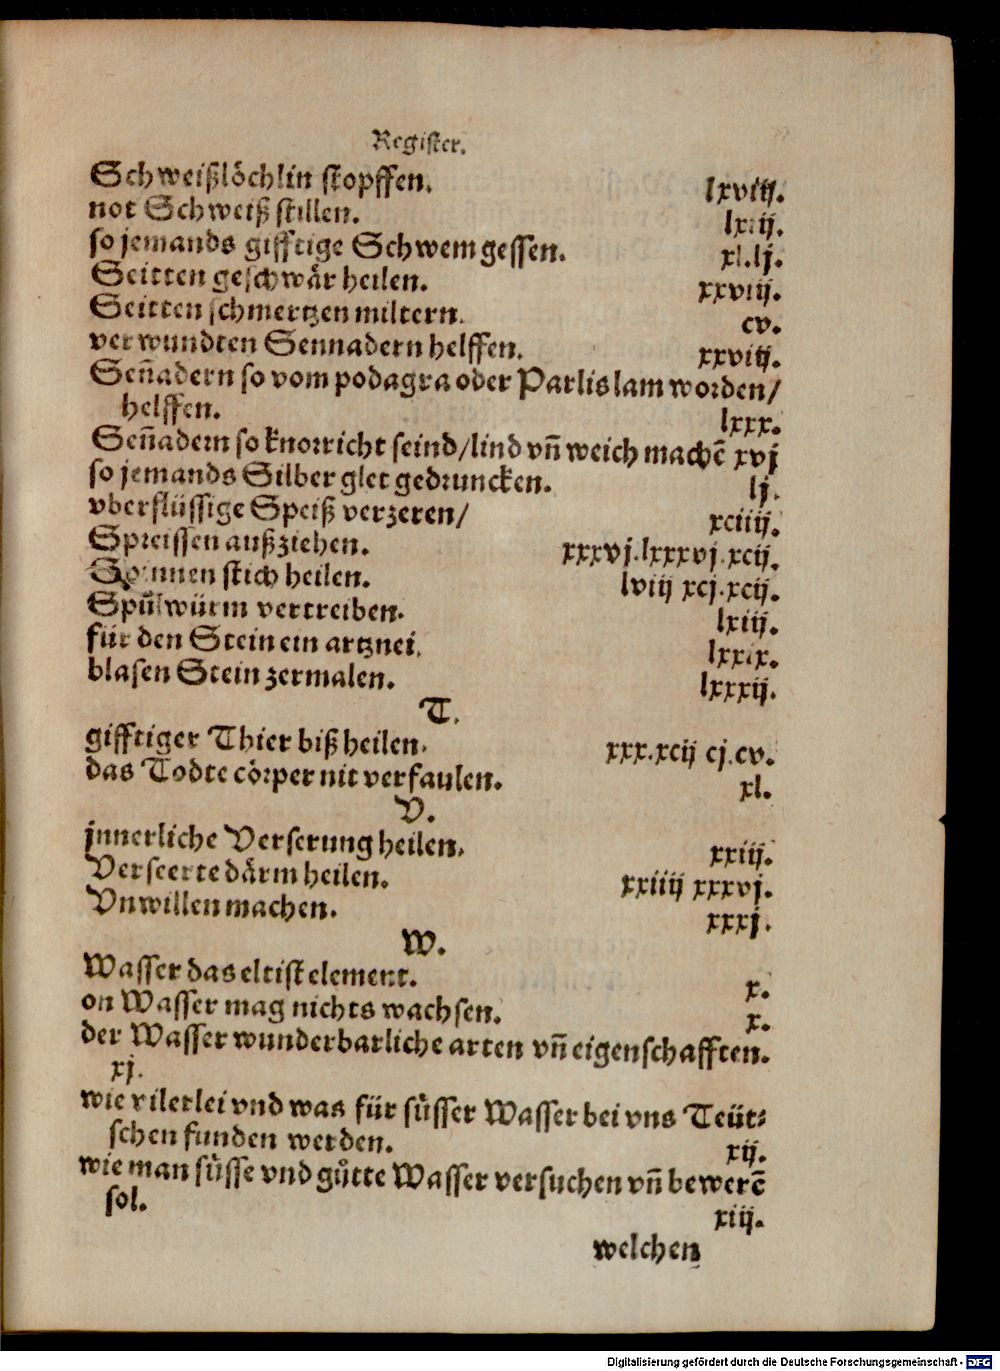 Register.
Schweißlöchlin stopffen. lxviij.
not Schweiß stillen. lxiij.
so jemands gifftige Schwem gessen. xl.lj.
Seitten geschwår heilen. xxviij.
Seitten schmertzen miltern. cv.
verwundten Sennadern helffen. xxviij.
Señadern so vom podagra oder Parlis lam worden/
helffen. lxxx.
Señadern so knorricht seind/lind vñ weich machē xvj
so jemands Silber glet gedruncken. lj.
vberflüssige Speiß verzeren/ xciiij.
Spreissen außziehen. xxxvj.lxxxvj.xcij.
Spinnen stich heilen. lviij xcj.xcij.
Spůlwürm vertreiben. lxiij.
für den Stein ein artznei. lxxix.
blasen Stein zermalen. lxxxij.
T.
gifftiger Thier biß heilen. xxx.xcij cj.cv.
das Todte cörper nit verfaulen. xl.
V.
jnnerliche Verserung heilen. xxiij.
Verseerte därm heilen. xxiiij xxxvj.
Vnwillen machen. xxxj.
W.
Wasser das eltist element. x.
on Wasser mag nichts wachsen. x.
der Wasser wunderbarliche arten vñ eigenschafften.
xj.
wie vilerlei vnd was für süsser Wasser bei vns Teüt⸗
schen funden werden. xij.
wie man süsse vnd gůtte Wasser versuchen vñ bewerē
sol. xiij.
welchen
Digitalisierung gefördert durch die Deutsche Forschungsgemeinschaft - DFG